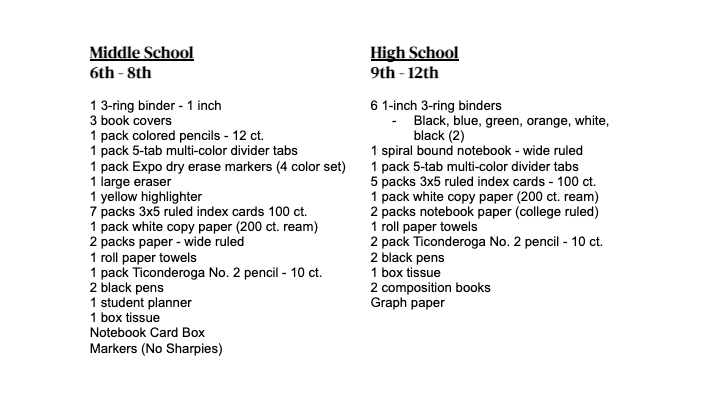 Middle School
6th - 8th
1 3-ring binder - 1 inch
3 book covers
1 pack colored pencils - 12 ct.
1 pack 5-tab multi-color divider tabs
1 pack Expo dry erase markers (4 color set)
1 large eraser
1 yellow highlighter
7 packs 3x5 ruled index cards 100 ct.
1 pack white copy paper (200 ct. ream)
2 packs paper - wide ruled
1 roll paper towels
1 pack Ticonderoga No. 2 pencil - 10 ct.
2 black pens
1 student planner
1 box tissue
Notebook Card Box
Markers (No Sharpies)
High School
9th - 12th
6 1-inch 3-ring binders
- Black, blue, green, orange, white,
black (2)
1 spiral bound notebook - wide ruled
1 pack 5-tab multi-color divider tabs
5 packs 3x5 ruled index cards - 100 ct.
1 pack white copy paper (200 ct. ream)
2 packs notebook paper (college ruled)
1 roll paper towels
2 pack Ticonderoga No. 2 pencil - 10 ct.
2 black pens
1 box tissue
2 composition books
Graph paper